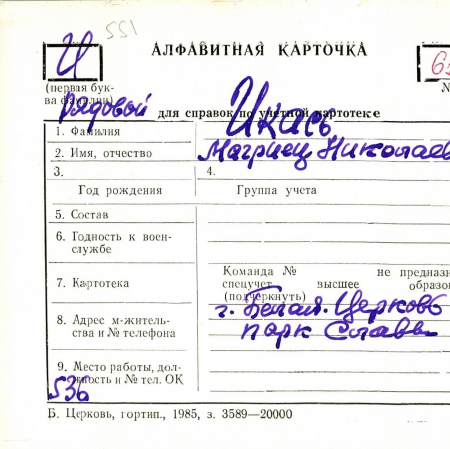 551
АЛФАВИТНАЯ КАРТОЧКА
И
(первая бук-
ва фамилии)
Рядовой
для справок по учетной картотеке
1. Фамилия
Икась
2. Имя, отчество
Николаев
3.
4.
Год рождения
Группа учета
5. Состав
6. Годность к воен-
службе
7. Картотека
Команда № не предназн
спецучет высшее образо
(подчеркнуть)
8. Адрес м-житель-
ства и № телефона
г. Белая. Церковь
парк Славы
9. Место работы, дол-
жность и № тел. ОК
536
Б. Церковь, гортип., 1985, з. 3589—20000